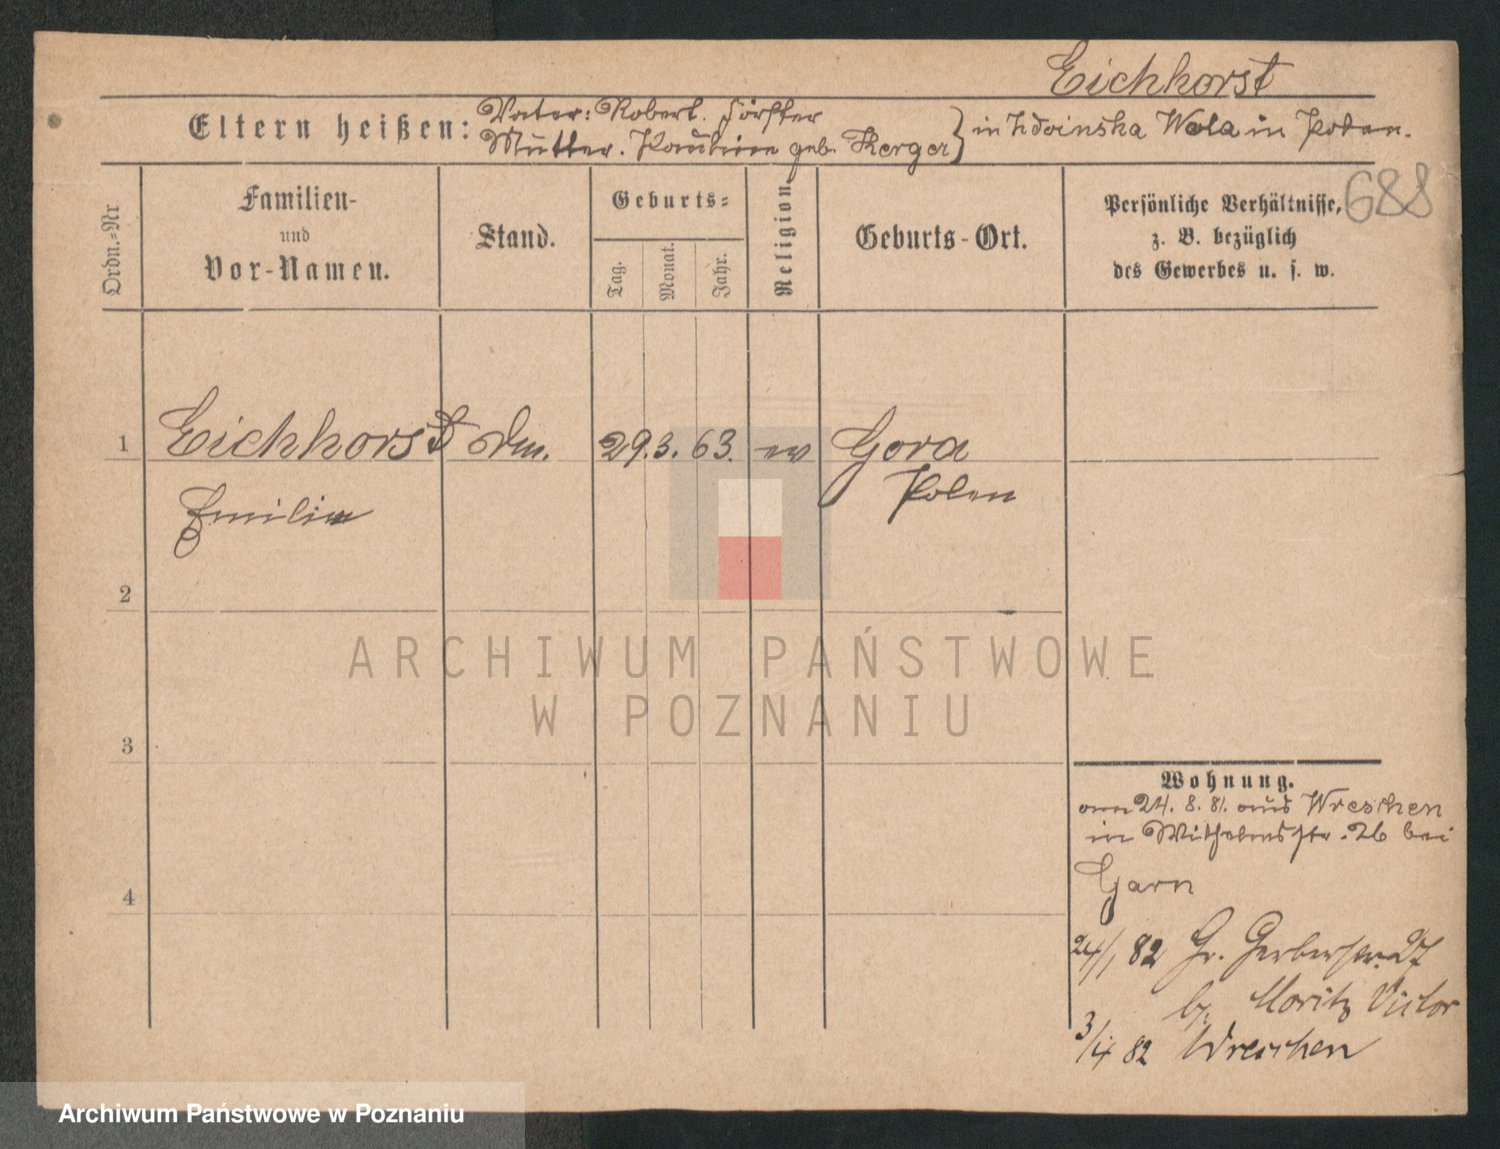 Eichhorst
Eltern heißen: Vater: Robert. Förster
Mutter. Pauline geb. Kerger } in Zdoinska Wola in Polen.
688
Ordn.-Nr
Familien-
und
Vor-Namen.
Stand.
Geburts-
Tag.
Monat.
Jahr.
Religion
Geburts-Ort.
Persönliche Verhältnisse,
z. B. bezüglich
des Gewerbes u. s. w.
1 Eichhorst 29. 3. 63. ev Gora
Emilie Polen
2
3
4
Wohnung.
am 24. 8. 81. aus Wreschen
in Wilhelmsstr. 26 bei
Garn
24/1 82 Gr. Gerberstr. 27
b. Moritz Victor
3/4 82 Wreschen
ARCHIWUM PAŃSTWOWE
W POZNANIU
Archiwum Państwowe w Poznaniu